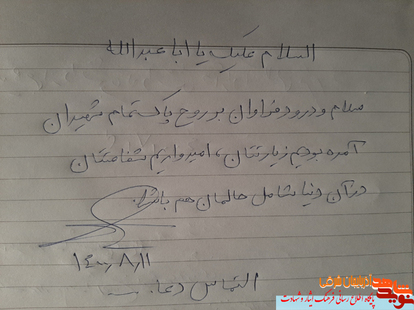 السلام علیک یا ابا عبدالله
سلام و درود فراوان بر روح پاک تمام شهیدان
آمده بودیم زیارتتان، امیدواریم شفاعتتان
در آن دنیا شامل حالمان هم باشد.
۱۴۰۰/۸/۱۱
التماس دعا
نوید
پایگاه اطلاع رسانی فرهنگ ایثار و شهادت